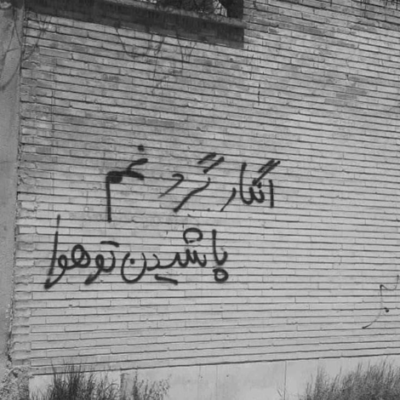 انگار گرد غم
پاشیدن تو هوا